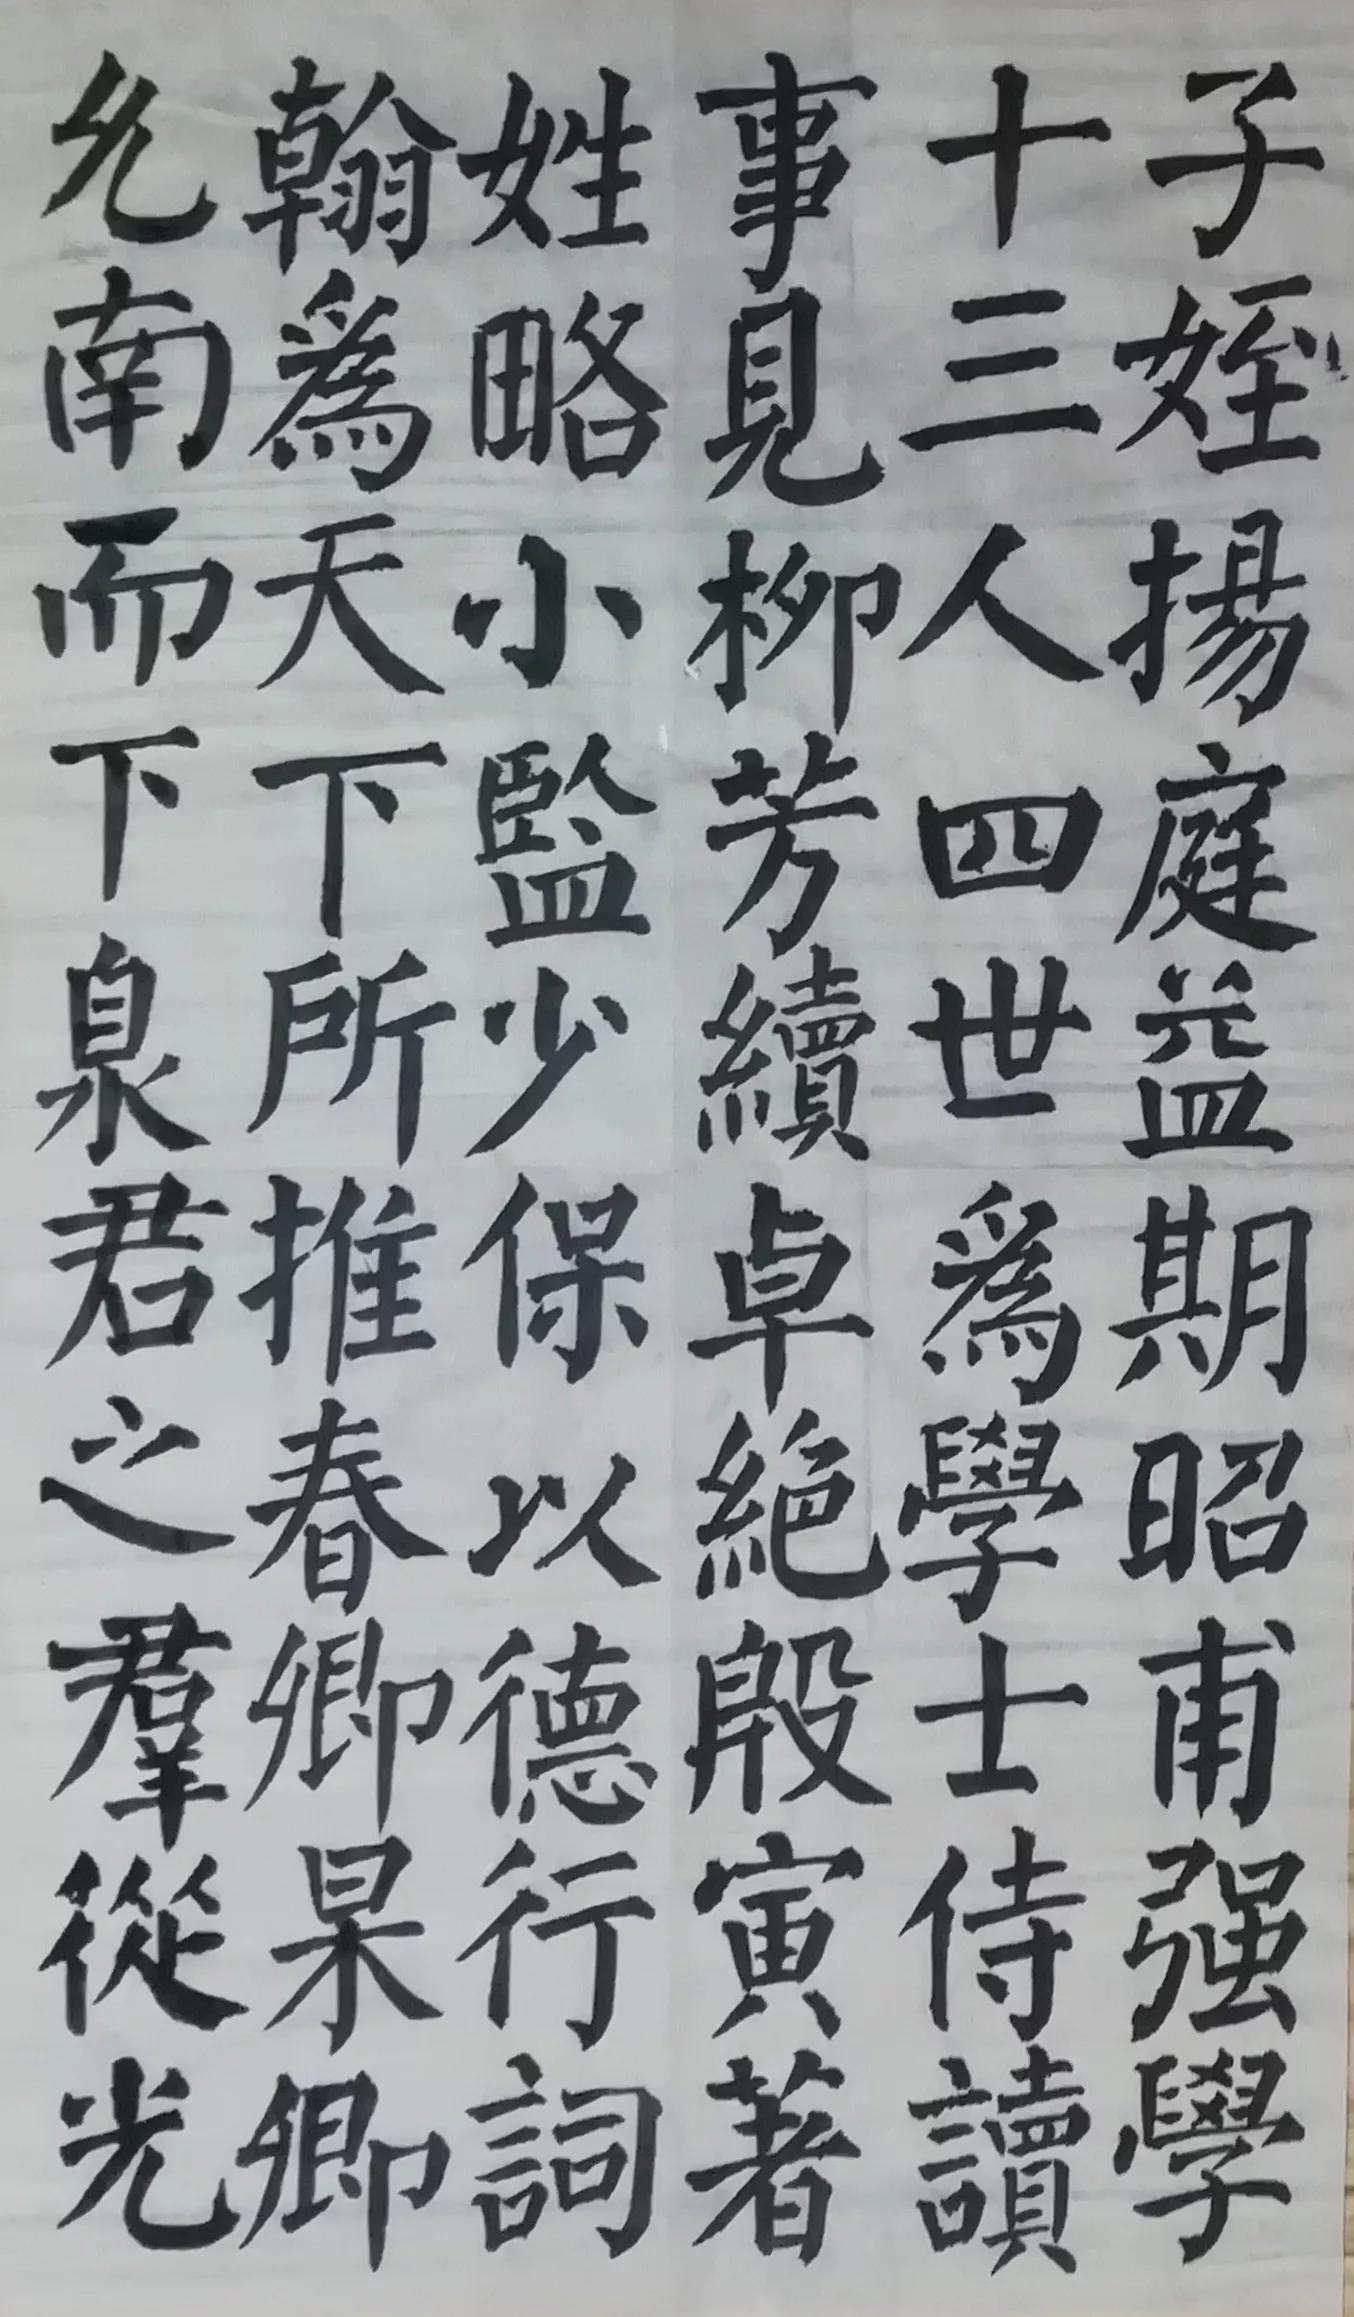 子姪揚庭益期昭甫强學
十三人四世爲學士侍讀
事見柳芳續卓絶殷寅著
姓略小監少保以德行詞
翰爲天下所推春卿杲卿
允南而下泉君之羣從光